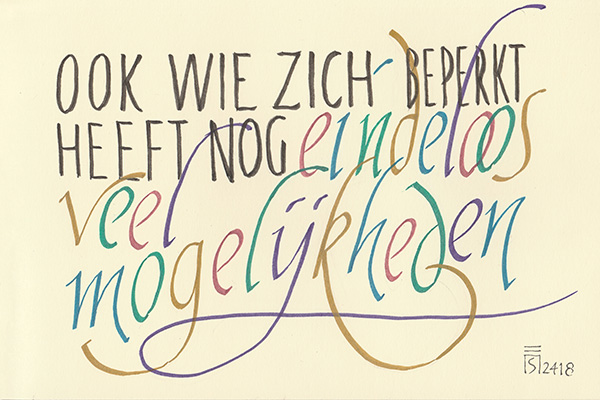 OOK WIE ZICH BEPERKT
HEEFT NOG eindeloos
veel
mogelijkheden
2418